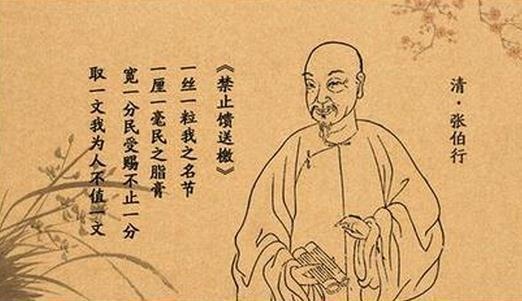 清·张伯行
《禁止馈送檄》
一丝一粒我之名节
一厘一毫民之脂膏
宽一分民受赐不止一分
取一文我为人不值一文